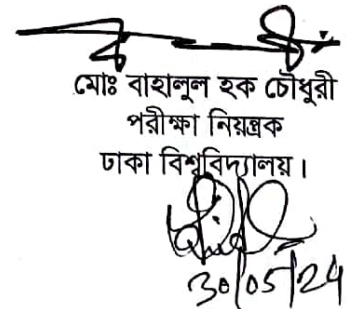 মোঃ বাহালুল হক চৌধুরী
পরীক্ষা নিয়ন্ত্রক
ঢাকা বিশ্ববিদ্যালয়।
30/05/24